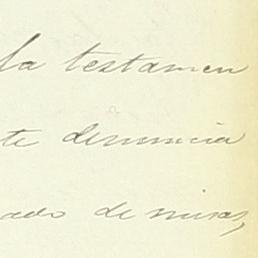 la testamen
te denuncia
ado de misas,